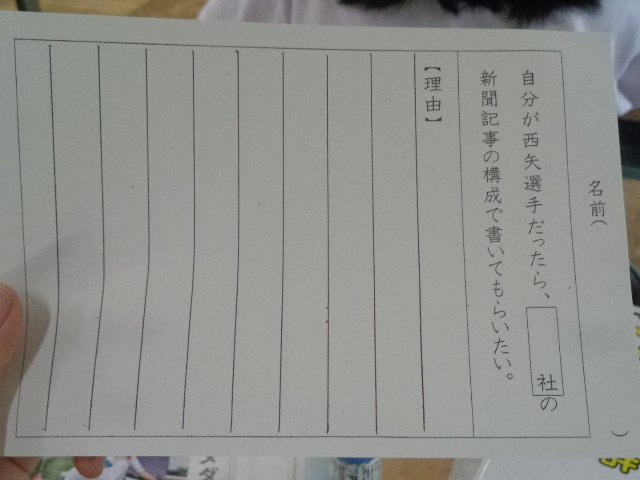 名前（　　　）
自分が西矢選手だったら、　社の
新聞記事の構成で書いてもらいたい。
【理由】
メダ